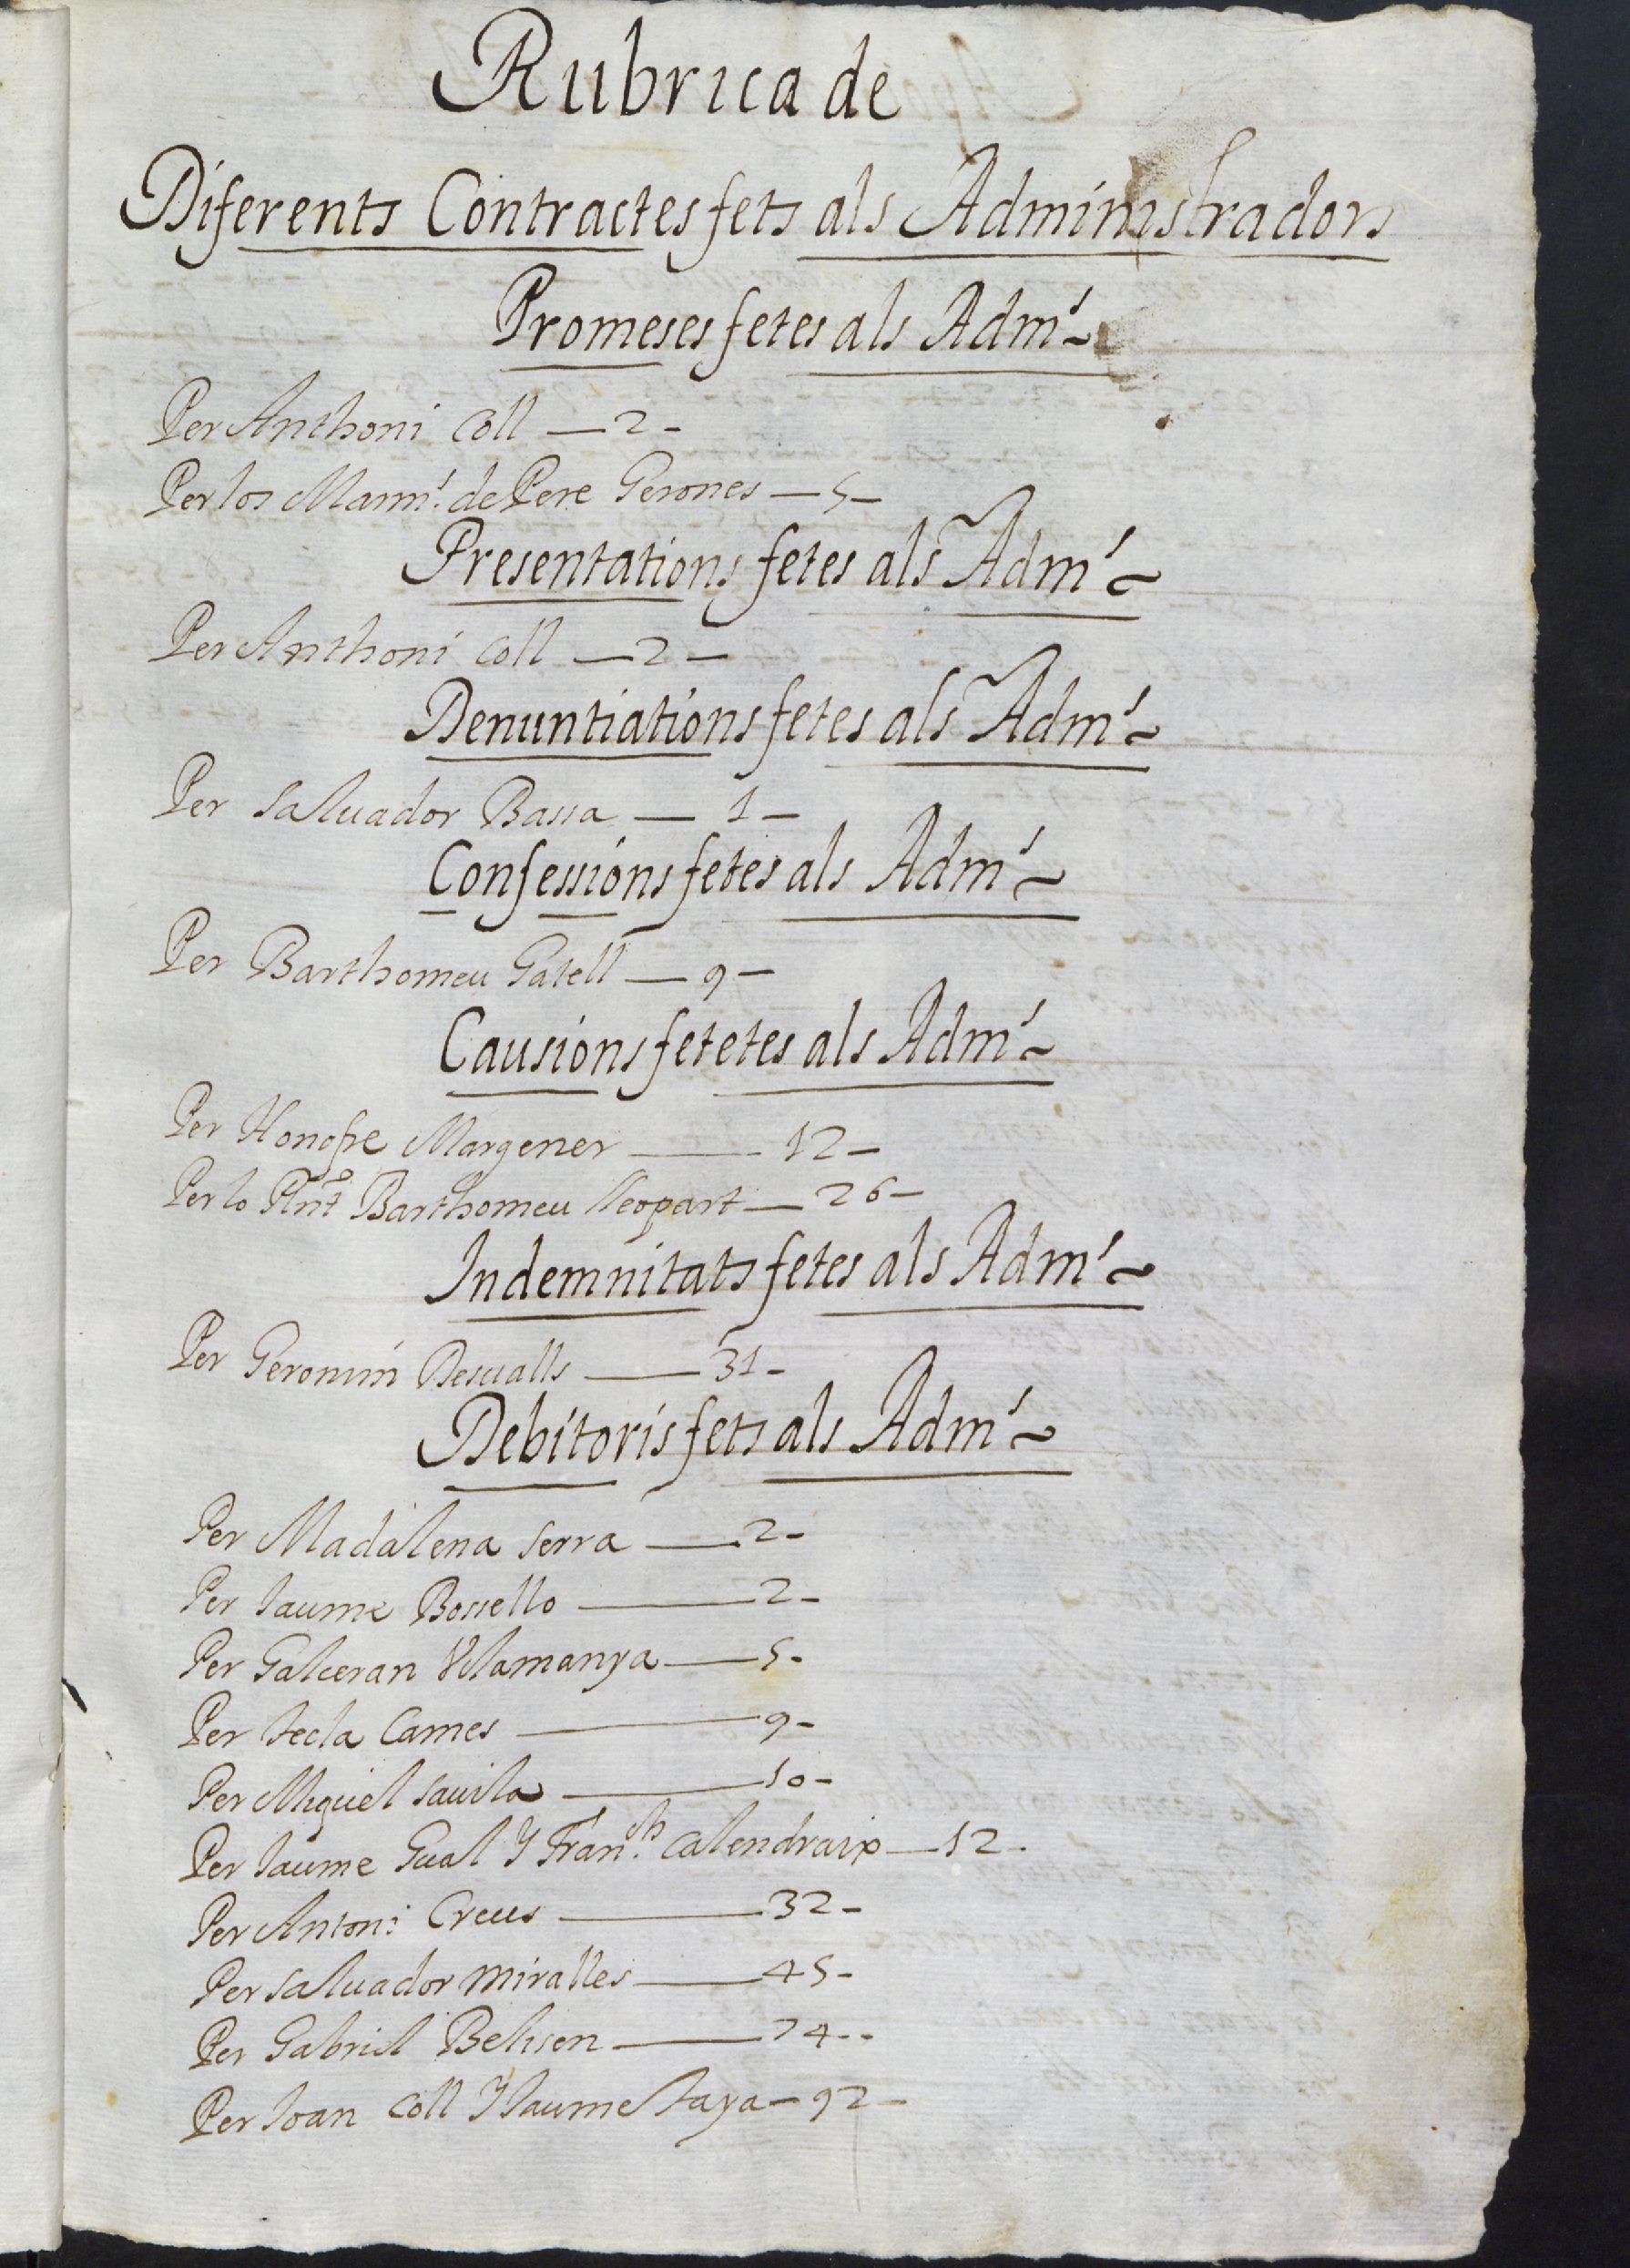 Rubrica de
Diferents Contractes fets als Administradors
Promeses fetes als Adm.s ~
Per Anthoni Coll — 2 -
Per los Marm.s de Pere Gerones — 5 —
Presentations fetes als Adm.s ~
Per Anthoni Coll — 2 —
Denuntiations fetes als Adm.s ~
Per Saluador Bassa — 1 —
Confessions fetes als Adm.s ~
Per Barthomeu Gatell — 9 —
Causions fetetes als Adm.s ~
Per Honofre Margener — 12 —
Per lo Barthomeu lleopart — 26 —
Indemnitats fetes als Adm.s ~
Per Geronim Desualls — 31 -
Debitoris fets als Adm.s ~
Per Madalena Serra — 2 -
Per Jaume Bossello — 2 -
Per Galceran Vilamanya — 5 -
Per Tecla Cames — 9 -
Per Miquel Sauila — 10 -
Per Jaume Gual Y Fran.ch Calendraix — 12 -
Per Antoni Creus — 32 -
Per Saluador Miralles — 45 -
Per Gabriel — 74 --
Per Joan Coll Y Jaume Taya — 92 —